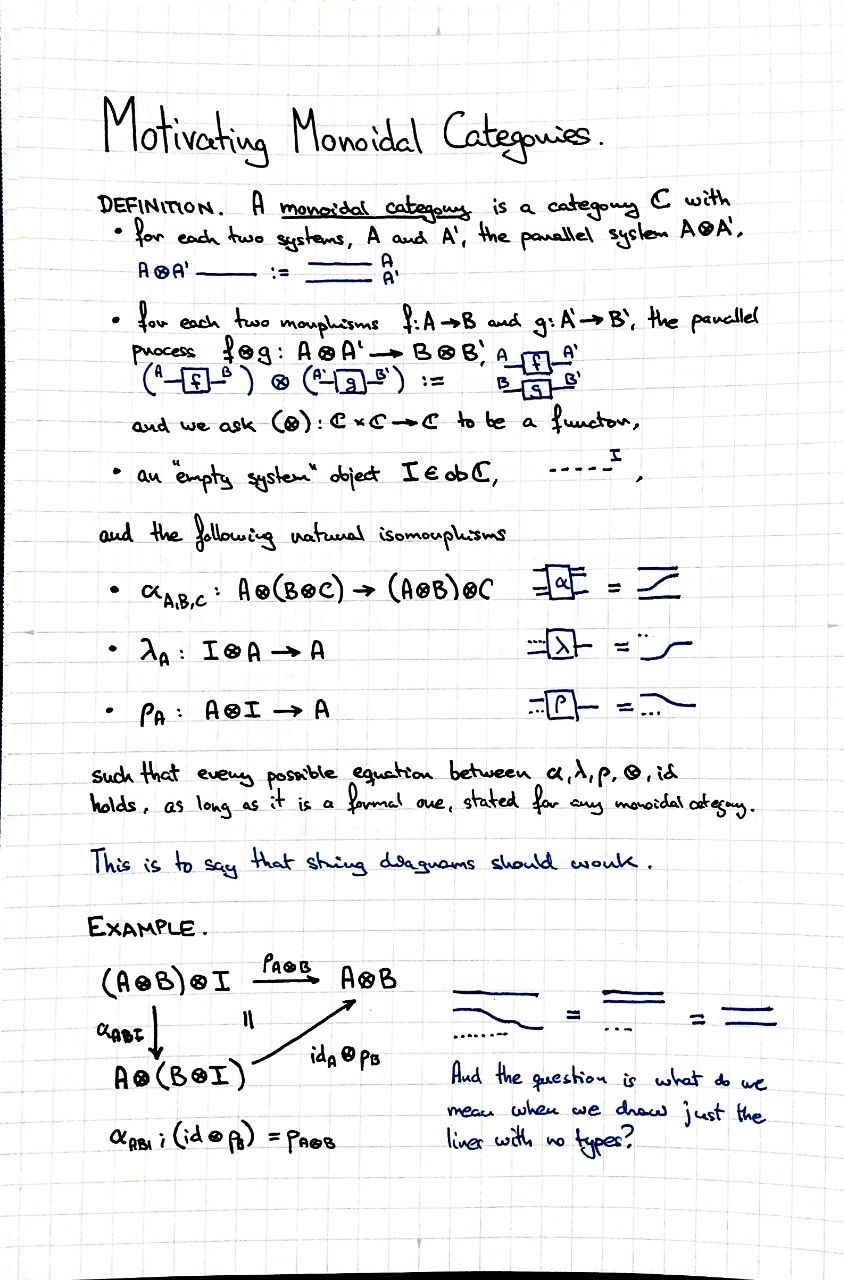 Motivating Monoidal Categories.
DEFINITION. A monoidal category is a category ℂ with
• for each two systems, A and A', the parallel system A⊗A',
A⊗A' —— := A
A'
• for each two morphisms f: A→B and g: A'→B', the parallel
process f⊗g: A⊗A' → B⊗B',
(A f B) ⊗ (A' g B') := A f A'
B g B'
and we ask (⊗): ℂ×ℂ→ℂ to be a functor,
• an "empty system" object I ∈ obℂ, ----- I ,
and the following natural isomorphisms
• α_{A,B,C} : A⊗(B⊗C) → (A⊗B)⊗C α =
• λ_A : I⊗A → A λ =
• ρ_A : A⊗I → A ρ =
such that every possible equation between α, λ, ρ, ⊗, id
holds, as long as it is a formal one, stated for any monoidal category.
This is to say that string diagrams should work.
EXAMPLE.
(A⊗B)⊗I ρ_{A⊗B} A⊗B
α_{ABI} || = =
A⊗(B⊗I) id_A⊗ρ_B
α_{ABI} ; (id⊗ρ_B) = ρ_{A⊗B}
And the question is what do we
mean when we draw just the
lines with no types?